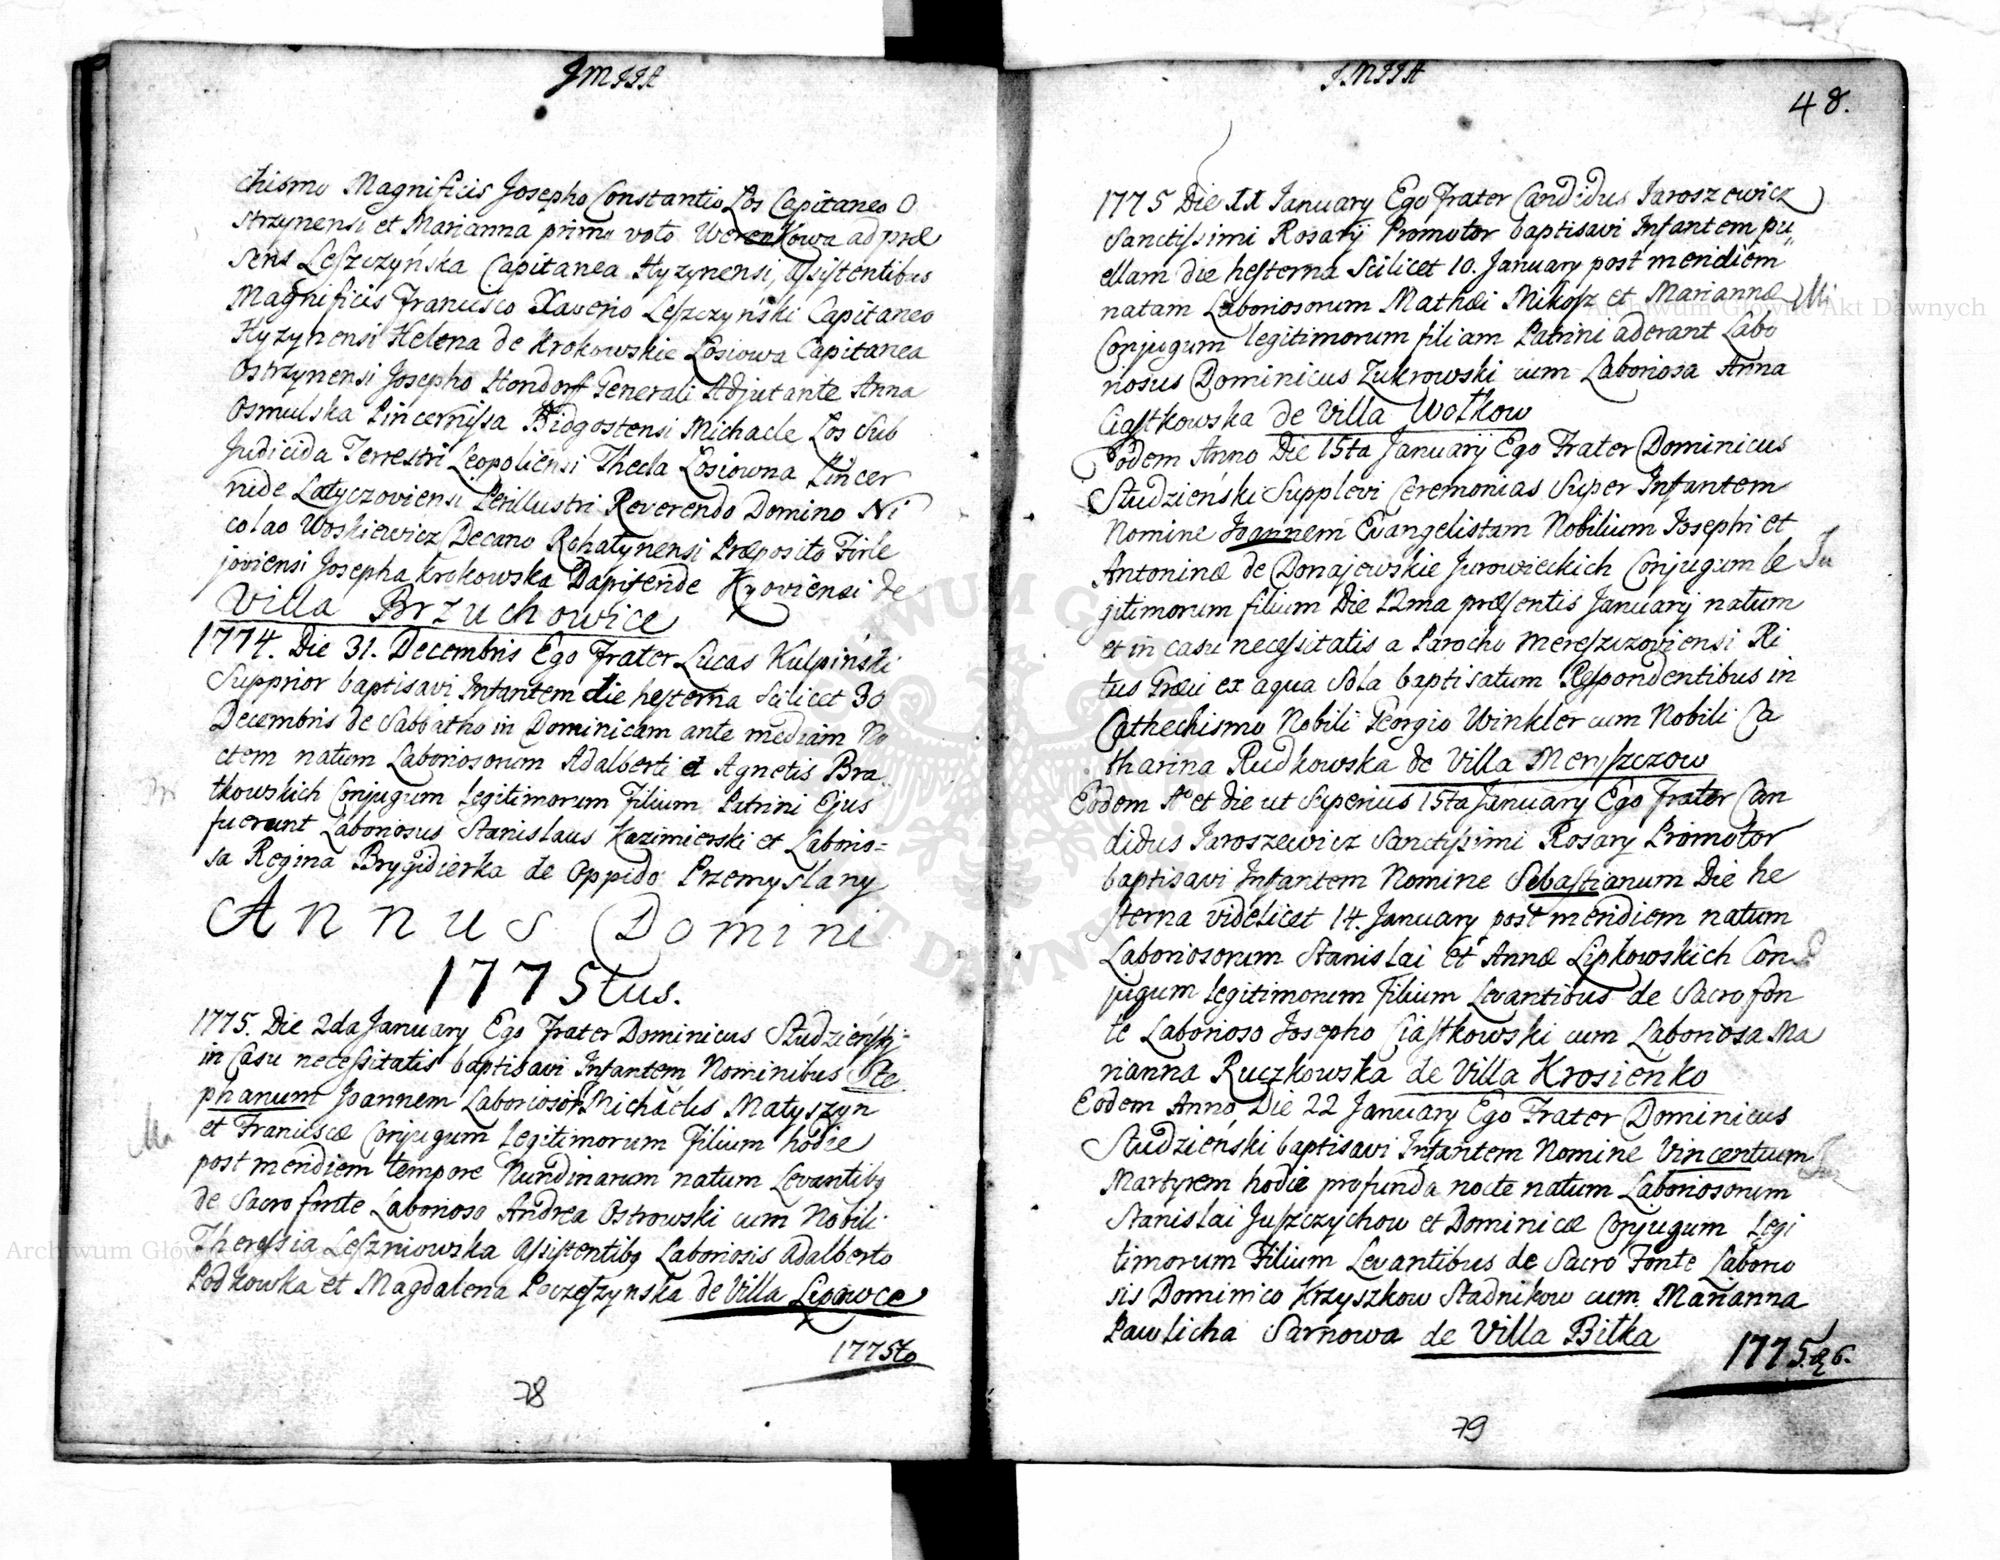 JMIIA
chismo Magnificis Josepho Constantio Łos Capitaneo O
strzynensi et Marianna primo voto Werenkowa ad præ
sens Leszczyńska Capitanea Hyzynensi, assistentibus
Magnificis Francisco Xaverio Leszczyński Capitaneo
Hyzynensi Helena de Krokowskie Łosiowa Capitanea
Ostrzynensi Josepho Hondorff Generali Adjutante Anna
Osmulska Pincernissa Bidgostensi Michaele Łos Sub
Judicida Terrestri Leopoliensi Thecla Łosiowna Pincer
nide Latyczoviensi Perillustri Reverendo Domino Ni
colao Woskiewicz Decano Rohatynensi Præposito Firle
joviensi Josepha Krokowska Dapiferide Kyoviensi de
Villa Brzuchowice
1774. Die 31. Decembris Ego Frater Lucas Kulpiński
Supprior baptisavi Infantem die hesterna Scilicet 30
Decembris de Sabbatho in Dominicam ante mediam No
ctem natum Laboriosorum Adalberti et Agnetis Bra
tkowskich Conjugum Legitimorum Filium Patrini Ejus
fuerunt Laboriosus Stanislaus Kazimierski et Laborio=
sa Regina Brygidierka de Oppido Przemyslany
Annus Domini
1775tus.
1775. Die 2da January Ego Frater Dominicus Studzieński
in Casu necessitatis baptisavi Infantem Nominibus Ste
phanum Joannem Laboriosor Michaelis Matyszyn
et Franciscæ Conjugum Legitimorum Filium hodie
post meridiem tempore Nundinarum natum Levantibq
de Sacro fonte Laborioso Andrea Ostrowski cum Nobili
Theressia Leszniowska assistentibq Laboriosis Adalberto
Podkowka et Magdalena Poczeszynska de Villa Lipowce
1775to
78
JMIIA
48.
1775 Die XX January Ego Frater Candidus Jaroszewicz
Sanctissimi Rosarij Promotor baptisavi Infantem pu
ellam die hesterna Scilicet 10. January post meridiem
natam Laboriosorum Mathæi Mikosz et Mariannæ
Conjugum legitimorum filiam Patrini aderant Labo
riosus Dominicus Zukrowski cum Laboriosa Anna
Ciastkowska de Villa Wołkow
Eodem Anno Die 15ta January Ego Frater Dominicus
Studzieński Supplevi Ceremonias Super Infantem
Nomine Joannem Evangelistam Nobilium Josephi et
Antoninæ de Donajewskie Jurowieckich Conjugum le
gitimorum filium Die 12ma præsentis January natum
et in casu necessitatis a Parocho Mereszczoviensi Ri
tus Græci ex aqua Sola baptisatum Respondentibus in
Cathechismo Nobili Georgio Winkler cum Nobili Ca
tharina Rudkowska de Villa Meryszczow
Eodem Ao et die ut Superius 15ta January Ego Frater Can
didus Jaroszewicz Sanctissimi Rosary Promotor
baptisavi Infantem Nomine Sebastianum Die he
sterna videlicet 14. January post meridiem natum
Laboriosorum Stanislai et Annæ Lipkowskich Con
jugum Legitimorum Filium Levantibus de Sacro fon
te Laborioso Josepho Ciastkowski cum Laboriosa Ma
rianna Ruczkowska de Villa Krosieńko
Eodem Anno, Die 22 January Ego Frater Dominicus
Studzieński baptisavi Infantem Nomine Vincentium
Martyrem hodie profunda nocte natum Laboriosorum
Stanislai Juszczychow et Dominicæ Conjugum Legi
timorum Filium Levantibus de Sacro Fonte Laborio
sis Dominico Krzyszkow Stadnikow cum Marianna
Pawlicha Sarnowa de Villa Biłka
79